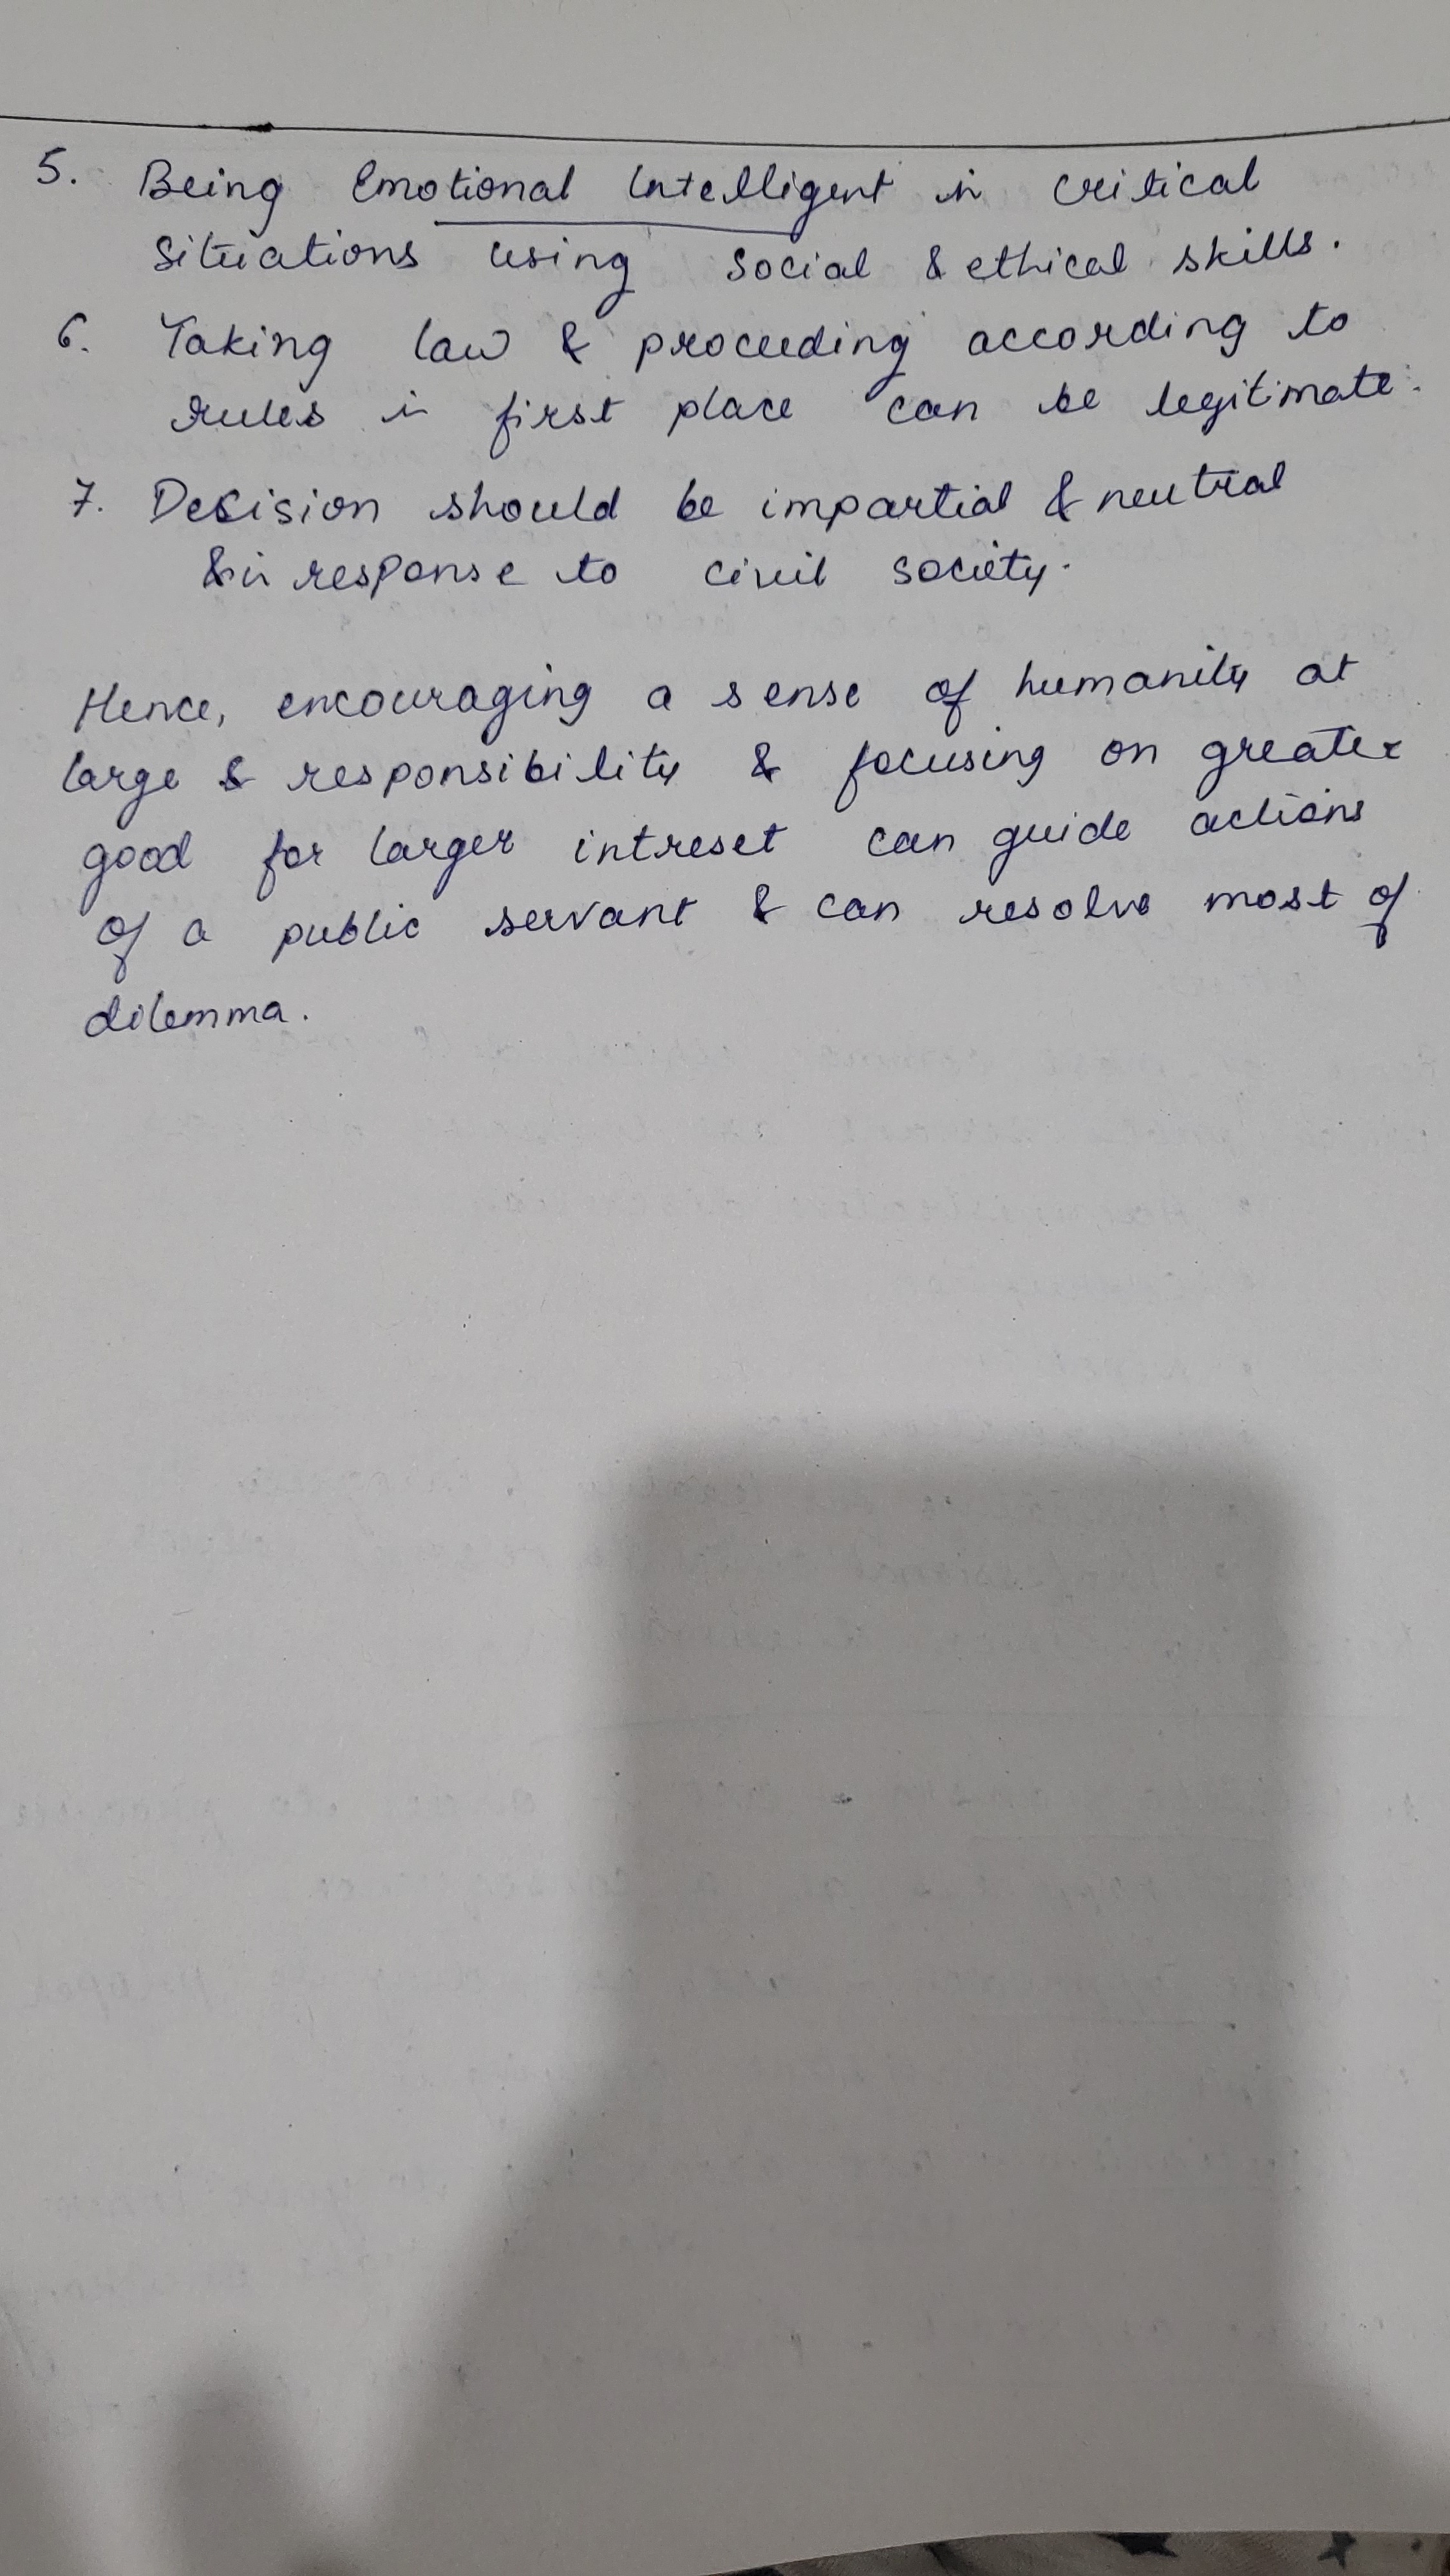 5. Being Emotional Intelligent in critical
situations using social & ethical skills.
6. Taking law & proceeding according to
rules in first place can be legitimate.
7. Decision should be impartial & neutral
& in response to civil society.
Hence, encouraging a sense of humanity at
large & responsibility & focusing on greater
good for larger intreset can guide actions
of a public servant & can resolve most of
dilemma.